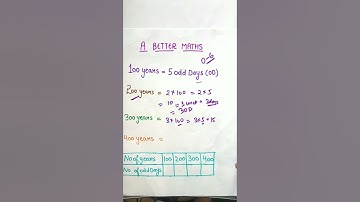 A BETTER MATHS
100 years = 5 odd Days (OD)
200 years = 2×100 = 2×5
= 10 = 1 week = 3days
= 3OD
300 years = 3×100 = 3×5 = 15
400 years =
No of years 100 200 300 400
No of odd Days